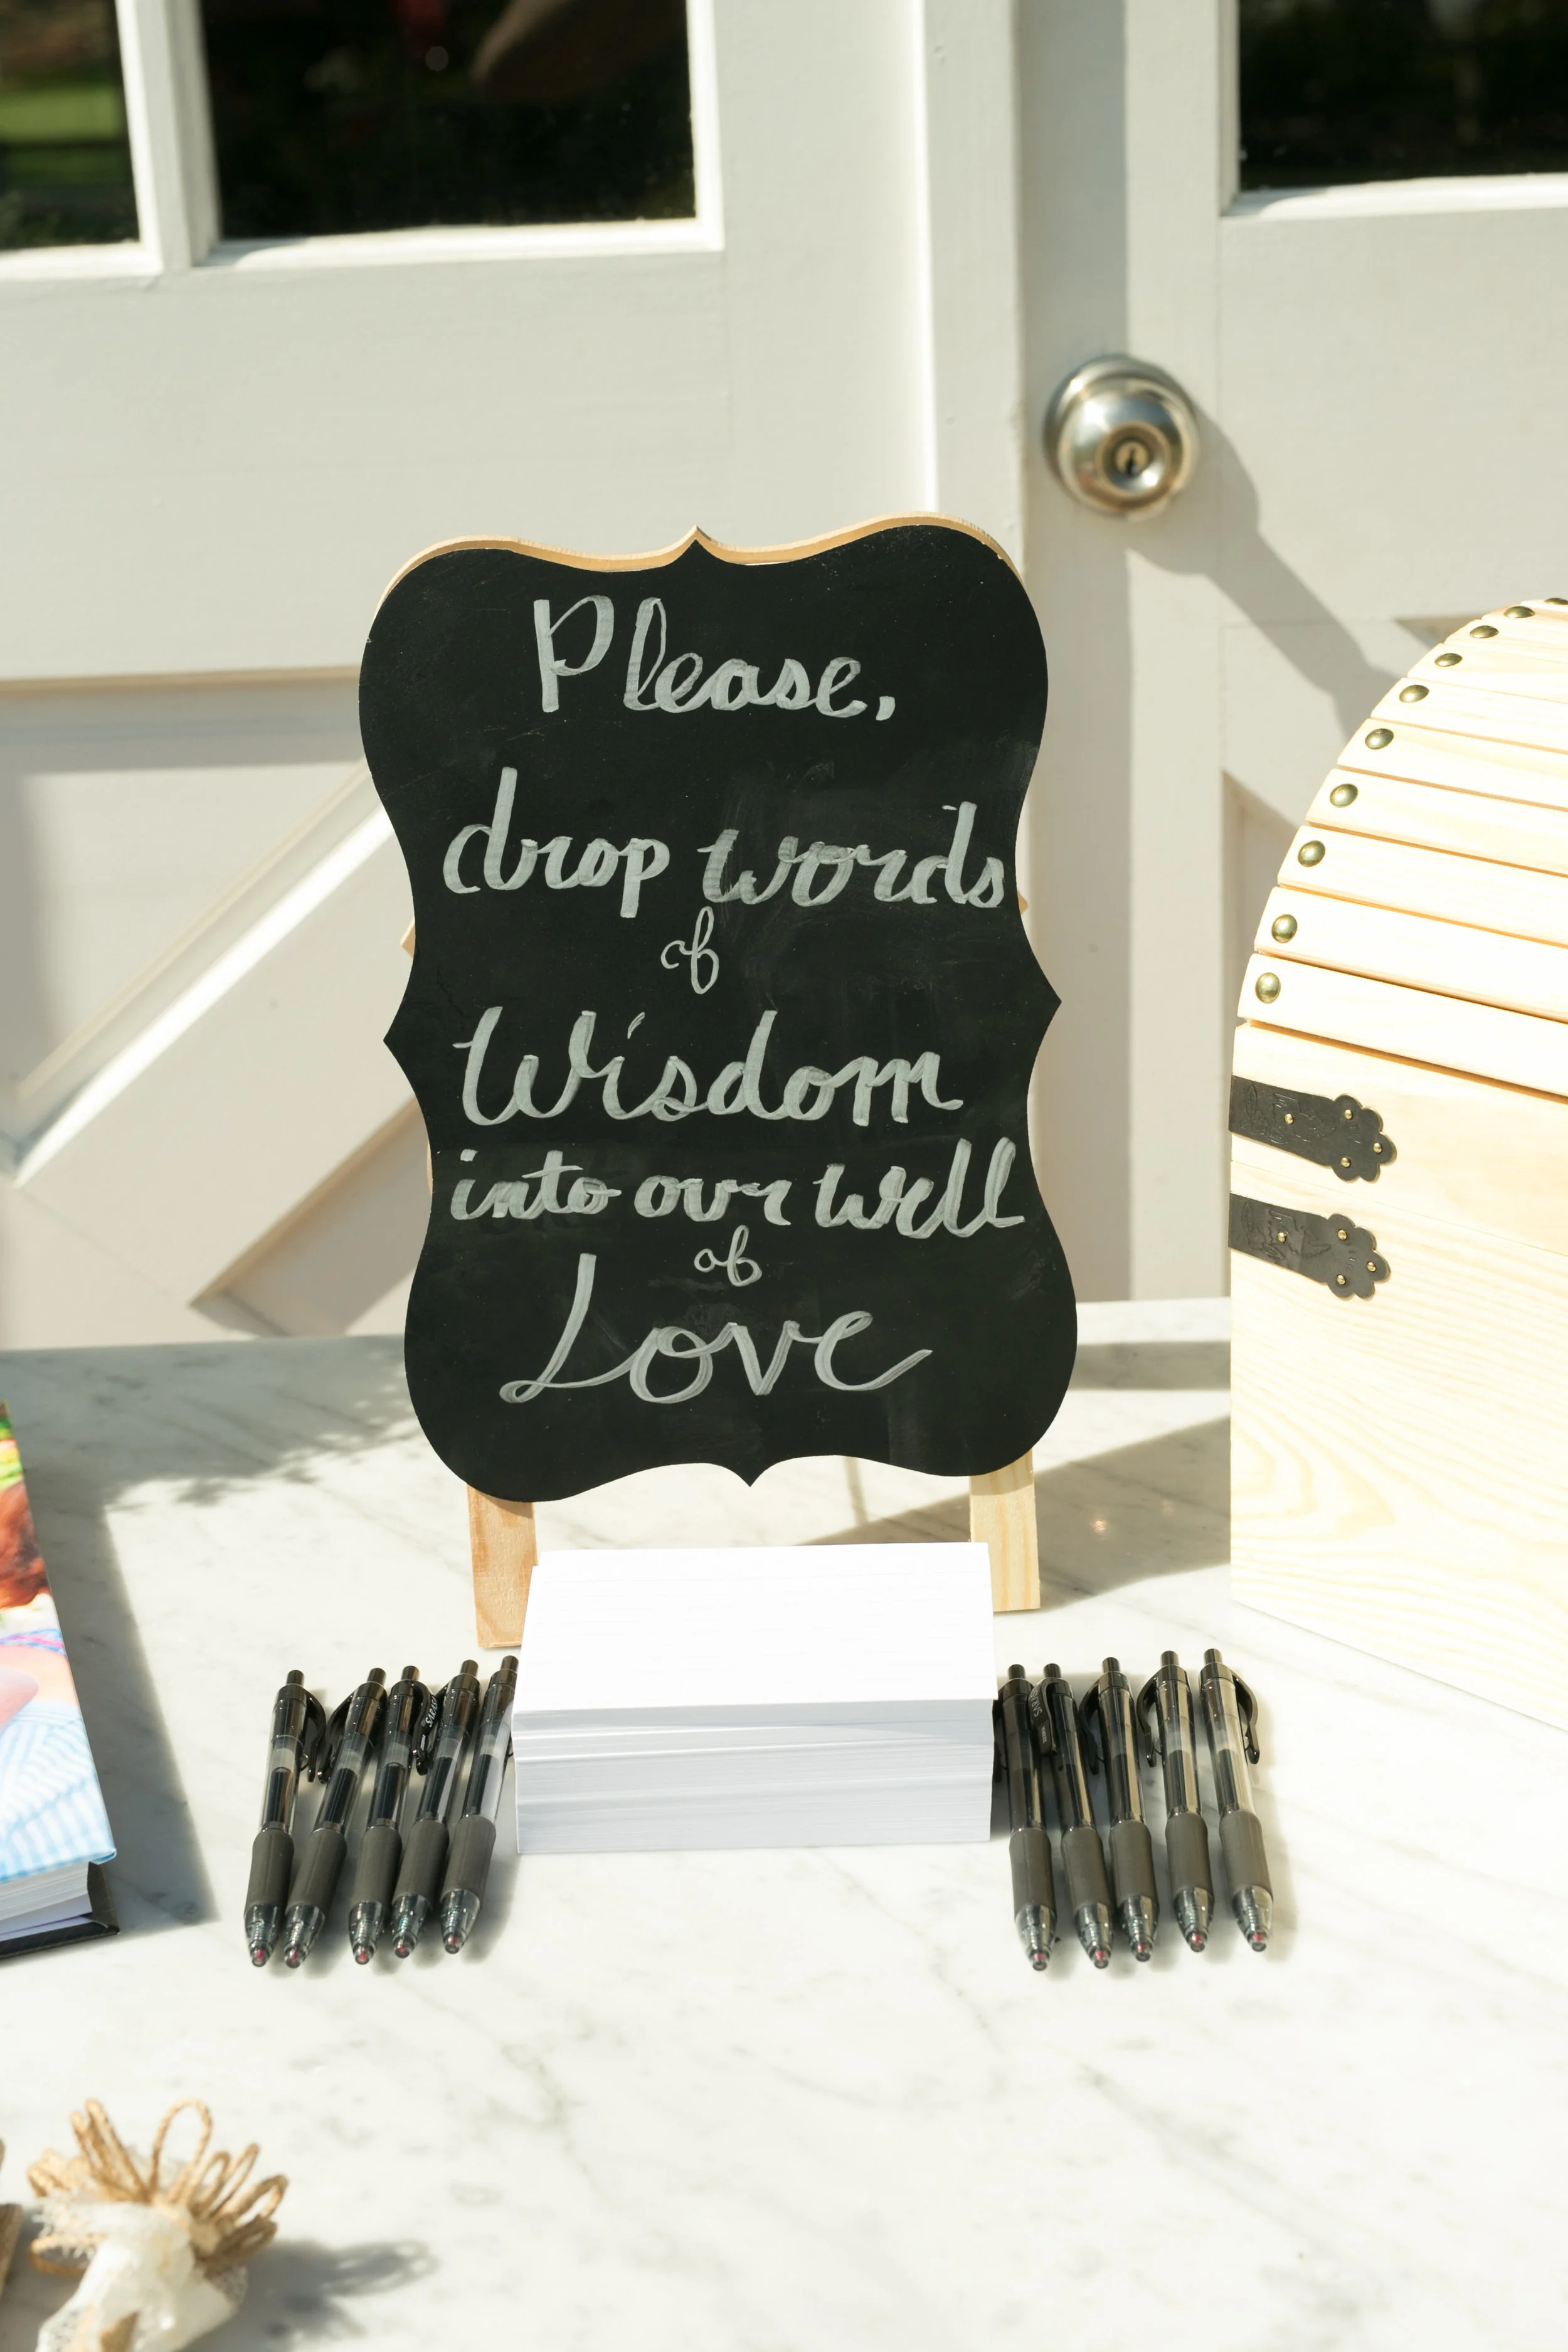 Please,
drop words
of
Wisdom
into our well
of
Love